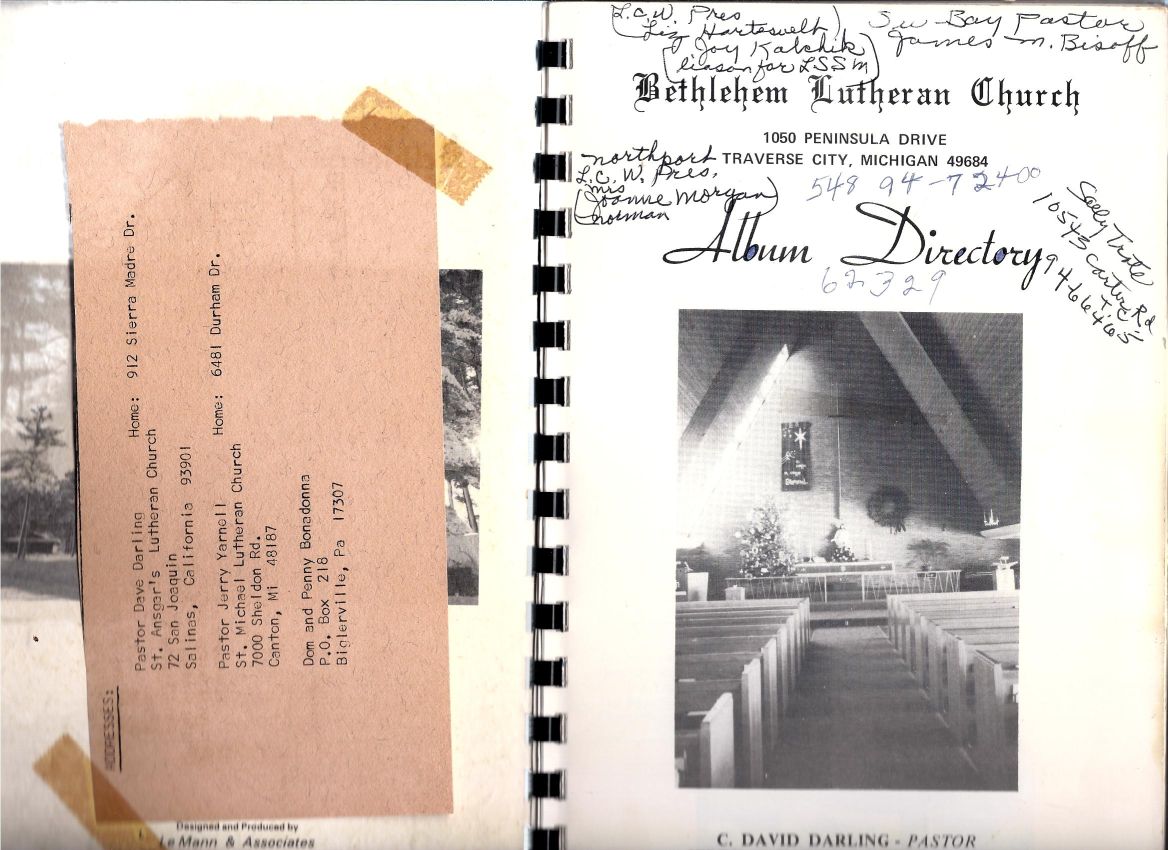 ADDRESSES:
Pastor Dave Darling Home: 912 Sierra Madre Dr.
St. Ansgar's Lutheran Church
72 San Joaquin
Salinas, California 93901
Pastor Jerry Yarnell Home: 6481 Durham Dr.
St. Michael Lutheran Church
7000 Sheldon Rd.
Canton, Mi 48187
Dom and Penny Bonadonna
P.O. Box 218
Biglerville, Pa 17307
Designed and Produced by
Le Mann & Associates
L.C.W. Pres
Liz Hartesvelt)
Joy Kalchik
(liason for LSSM)
Su Bay Pastor
James M. Bisoff
Bethlehem Lutheran Church
1050 PENINSULA DRIVE
TRAVERSE CITY, MICHIGAN 49684
northport
L.C.W. Pres,
mrs
(Joanne Morgan)
norman
548 94-72400
Album Directory
62329
10543 Carter Rd
T.C.
9466465
C. DAVID DARLING - PASTOR